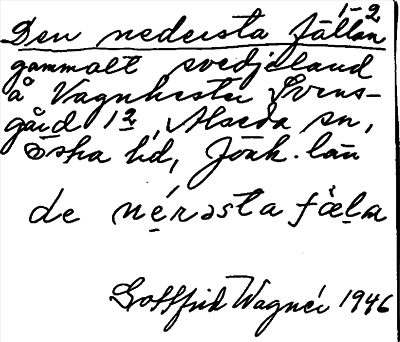 1-2
Den nedersta fällan
gammalt svedjeland
å Vagnhester Svens-
gård 1², Alseda sn,
Östra hd, Jönk. län
de nérəsta fæla
Gottfrid Wagnér 1946